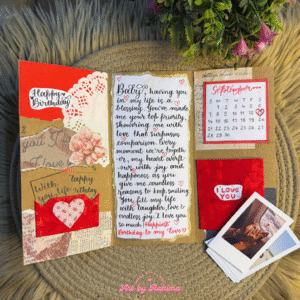 Happy
Birthday
you
love
With
happy
you, life
birthday
Baby, having you
in my life is a
blessing. You've made
me your top priority,
showering me with
love that surpasses
comparison. Every
moment we're togeth-
er, my heart overfl-
ows with joy and
happiness as you
give me countless
reasons to keep smiling.
You fill my life
with laughter, love &
endless joy. I love you
so much. Happiest
Birthday to my love
September
S M T W T F S
I LOVE
YOU
Art by Ramima